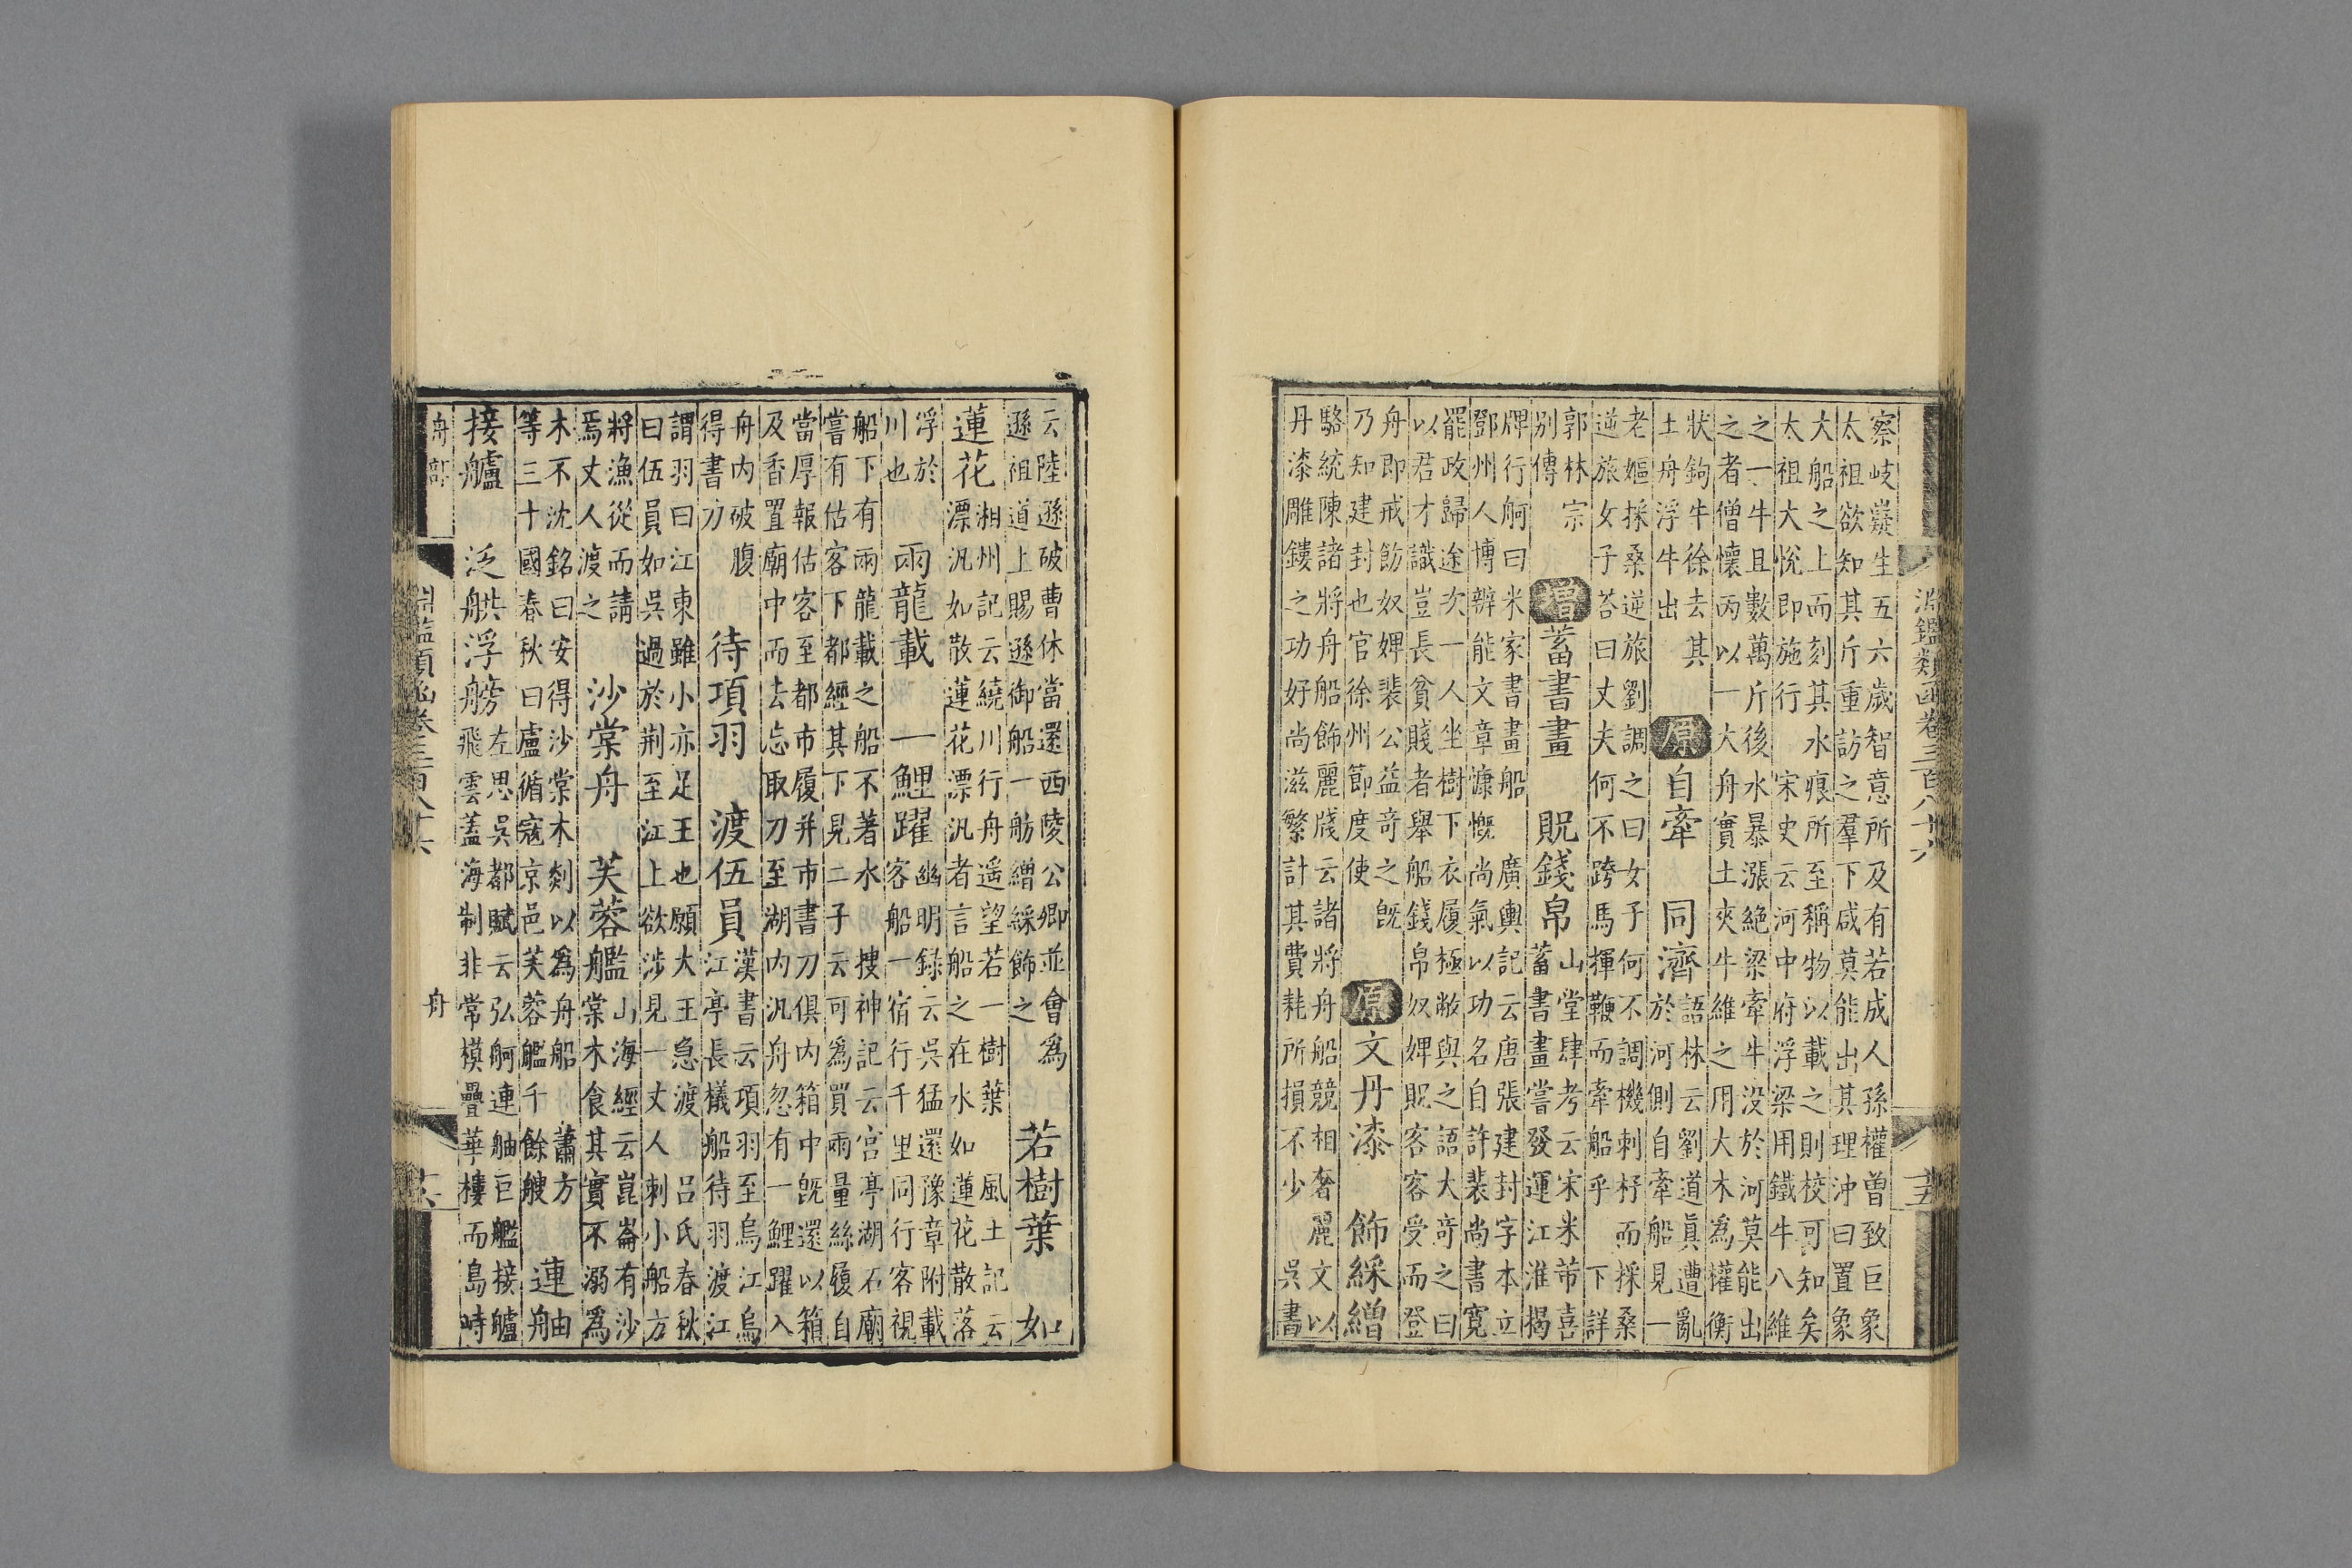 淵鑑類函卷三百八十六
十五
察岐嶷生五六歲智意所及有若成人孫權曾致巨象
太祖欲知其斤重訪之羣下咸莫能出其理沖曰置象
大船之上而刻其水痕所至稱物以載之則校可知矣
太祖大悅即施行 宋史云河中府浮梁用鐵牛八維
之一牛且數萬斤後水暴漲絕梁牽牛没於河莫能出
之者僧懷丙以一大舟實土夾牛維之用大木為權衡
狀鉤牛徐去其
土舟浮牛出
原 自牽 同濟
語林云劉道眞遭亂
於河側自牽船見一
老嫗採桑逆旅劉調之曰女子何不調機利杼而採桑
逆旅女子荅曰丈夫何不跨馬揮鞭而牽船乎 下詳
郭林宗
别傳
增 蓄書畫 貺錢帛
山堂肆考云宋米芾喜
蓄書畫嘗發運江淮揭
牌行舸曰米家書畫船 廣輿記云唐張建封字本立
鄧州人博辨能文章慷慨尚氣以功名自許裴尚書寬
罷政歸途次一人坐樹下衣履極敝與之語大奇之曰
以君才識豈長貧賤者舉船錢帛奴婢貺客客受而登
舟即戒飭奴婢裴公益奇之旣
乃知建封也官徐州節度使
原 文丹漆 飾綵繒
駱統陳諸將舟船飾麗牋云諸將舟船競相奢麗文以
丹漆雕鏤之功好尚滋繁計其費耗所損不少 吳書
云陸遜破曹休當還西陵公卿並會為
遜祖道上賜遜御船一舫繒綵飾之
若樹葉 如
蓮花
湘州記云繞川行舟遥望若一樹葉 風土記云
漂汎如散蓮花漂汎者言船之在水如蓮花散落
浮於
川也
雨龍載 一鯉躍
幽明録云吳猛還豫章附載
客船一宿行千里同行客視
船下有雨龍載之船不著水 搜神記云宮亭湖石廟
嘗有估客下都經其下見二子云可為買兩量絲履自
當厚報估客至都市履并市書刀俱内箱中旣還以箱
及香置廟中而去忘取刀至湖内汎舟忽有一鯉躍入
舟内破腹
得書刀
待項羽 渡伍員
漢書云項羽至烏江烏
江亭長檥船待羽渡江
謂羽曰江東雖小亦足王也願大王急渡 吕氏春秋
曰伍員如吳過於荆至江上欲涉見一丈人刺小船方
將漁從而請
焉丈人渡之
沙棠舟 芙蓉艦
山海經云崑崙有沙
棠木食其實不溺為
木不沈銘曰安得沙棠木剡以為舟船 蕭方
等三十國春秋曰盧循寇京邑芙蓉艦千餘艘
連舳
接艫 泛舼浮艕
左思吳都賦云弘舸連舳巨艦接艫
飛雲蓋海制非常模疊華樓而島時
舟部
淵鑑類函卷三百八十六
舟
十六